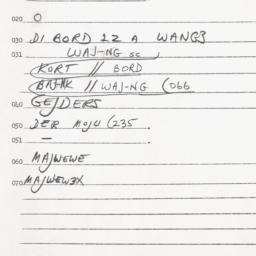 020 O
030 DI BORD IZ A WANG3
031 WAJ-NG sc
KORT // BORD
BAJHK // WAJ-NG (066
040 GEJDERS
050 DER MOJU (235
051 —
060 MAJWEWE
070 MAJWEW3X